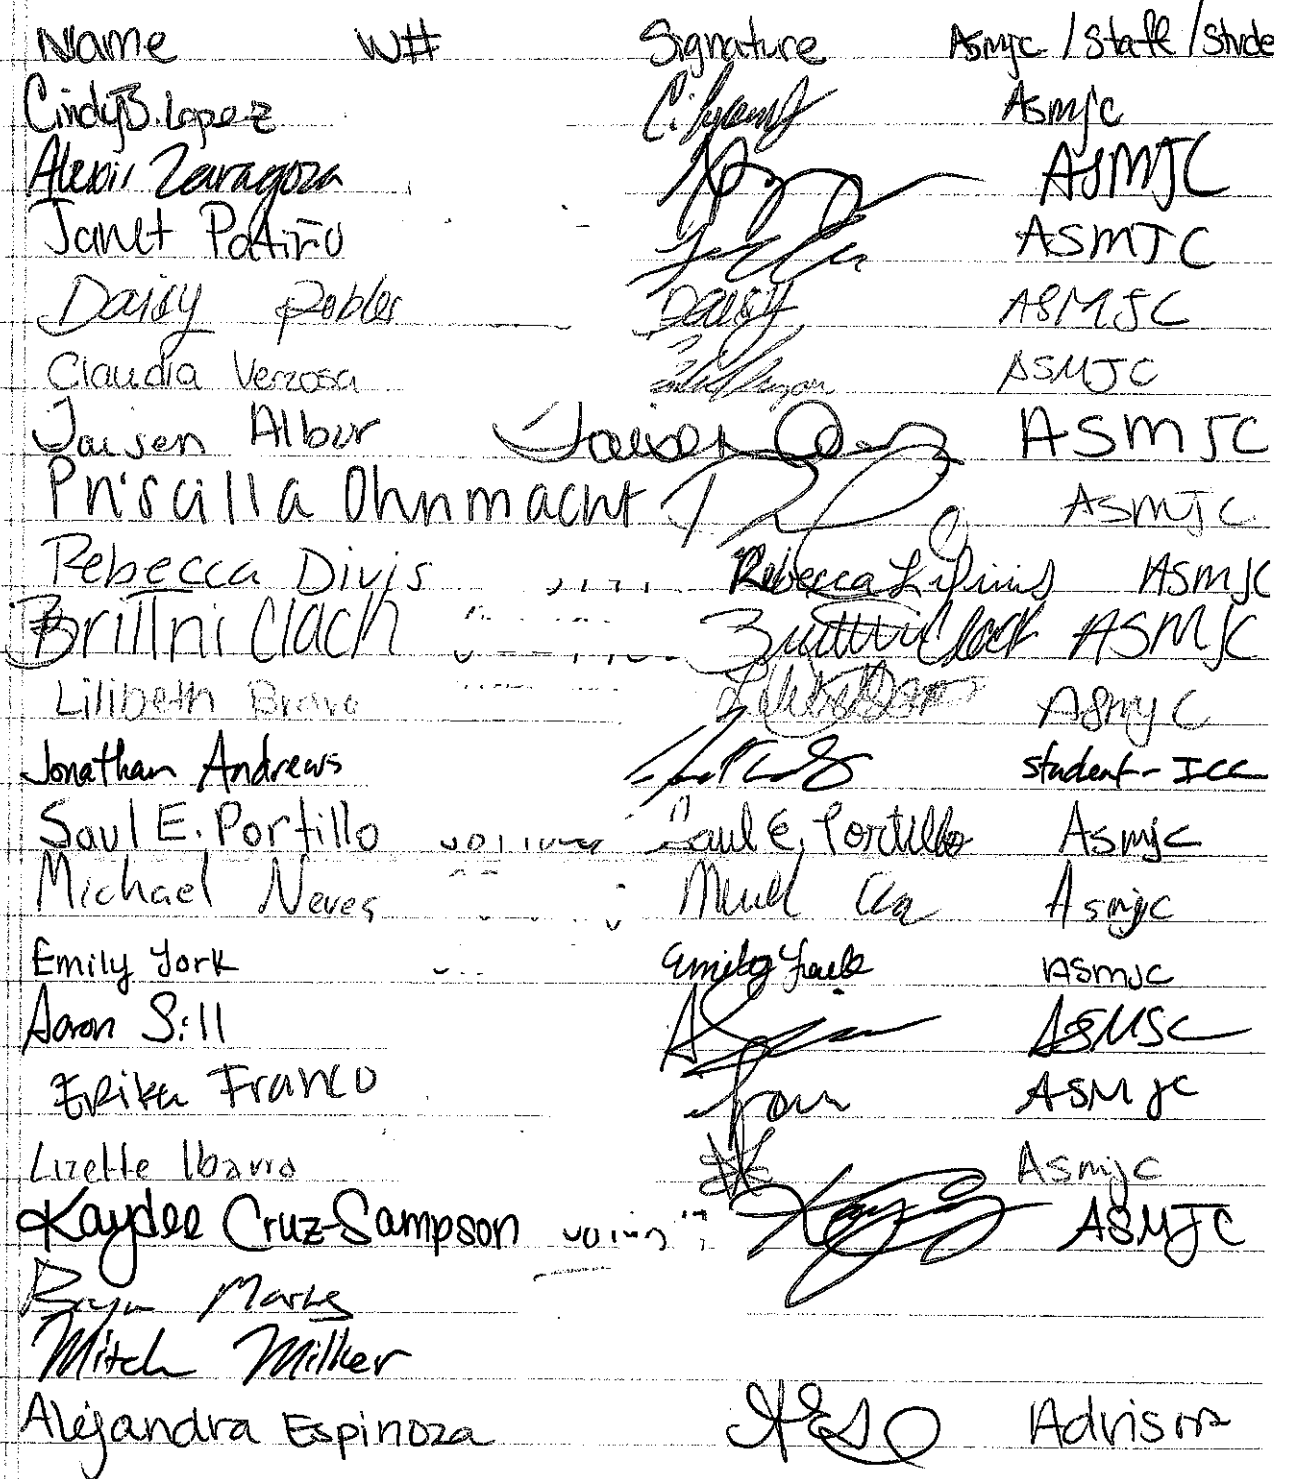 Name W# Signature Asmjc / Staff / Stude
Cindy B. Lopez Asmjc
Alexis Zaragoza ASMJC
Janet Patiño ASMJC
Daisy Robles Daisy ASMJC
Claudia Verzosa ASMJC
Jaisen Albur Jaisen ASMJC
Priscilla Ohnmacht ASMJC
Rebecca Divis Rebecca ASMJC
Brittni Clach Brittni Clark ASMJC
Lilibeth Bravo Asmjc
Jonathan Andrews Student - ICC
Saul E. Portillo Saul E. Portillo Asmjc
Michael Neves Asmjc
Emily York Emily York ASMJC
Aaron Sill ASMJC
Erika Franco ASMJC
Lizette Ibarra Asmjc
Kaydee Cruz-Sampson ASMJC
Marks
Mitch Milker
Alejandra Espinoza Advisor